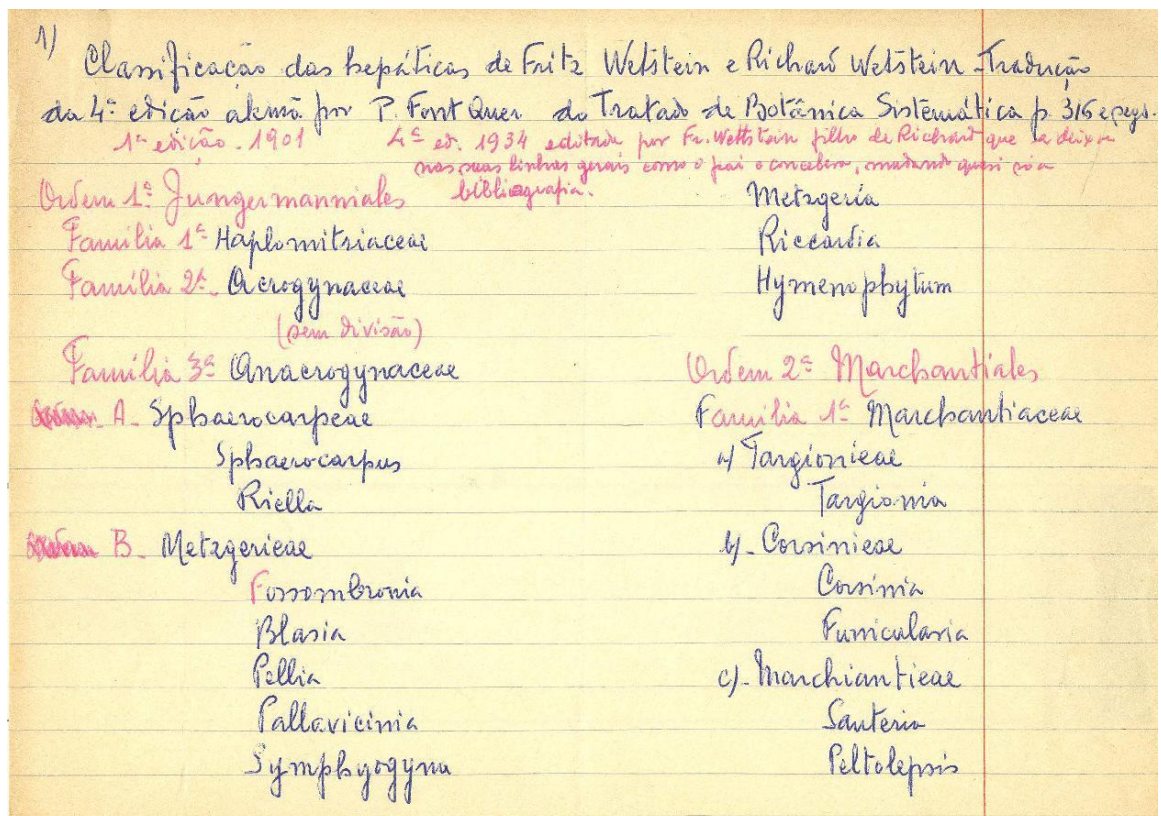 1)
Classificação das hepáticas de Fritz Wetstein e Richard Wetstein - Tradução
da 4ª edição alemã por P. Font Quer do Tratado de Botânica Sistemática p. 316 e segs.
1ª edição - 1901
4ª ed. 1934 editada por Fr. Wettstein filho de Richard que a deixa
nas suas linhas gerais como o pai o concebera, mudando quasi só a
bibliografia.
Ordem 1ª Jungermanniales
Família 1ª Haplomitriaceae
Família 2ª - Acrogynaceae
(sem divisão)
Família 3ª Anacrogynaceae
A - Sphaerocarpeae
Sphaerocarpus
Riella
B - Metzgerieae
Fossombronia
Blasia
Pellia
Pallavicinia
Symphyogyna
Metzgeria
Riccardia
Hymenophytum
Ordem 2ª Marchantiales
Família 1ª Marchantiaceae
a) Targionieae
Targionia
b) - Corsinieae
Corsinia
Funicularia
c) - Marchiantieae
Sauteria
Peltolepsis